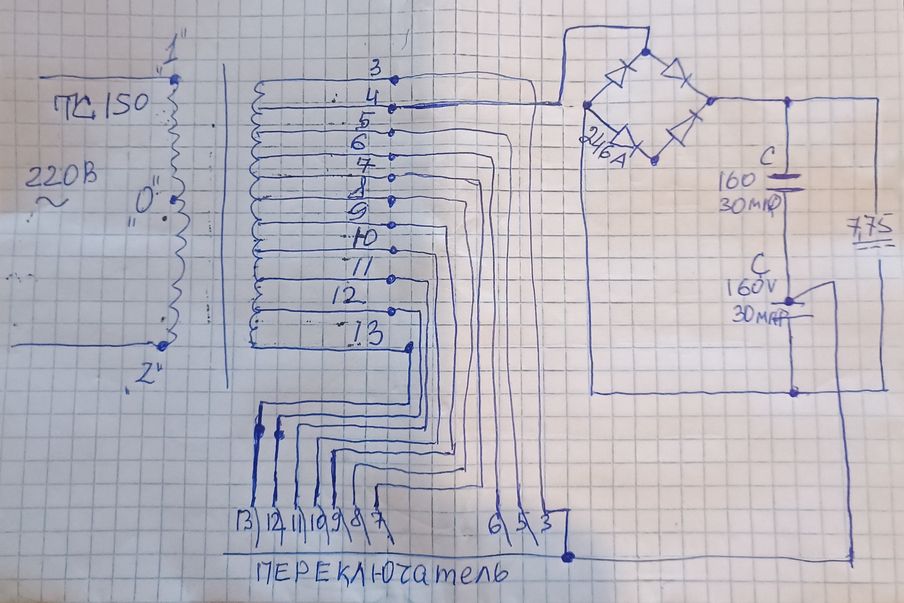 „1"
ТС 150
220В
~
„0"
„2"
3
4
5
6
7
8
9
10
11
12
13
246А
С
160
30МКФ
С
160V
30МКФ
7,75
13 12 11 10 9 8 7 6 5 3
ПЕРЕКЛЮЧАТЕЛЬ